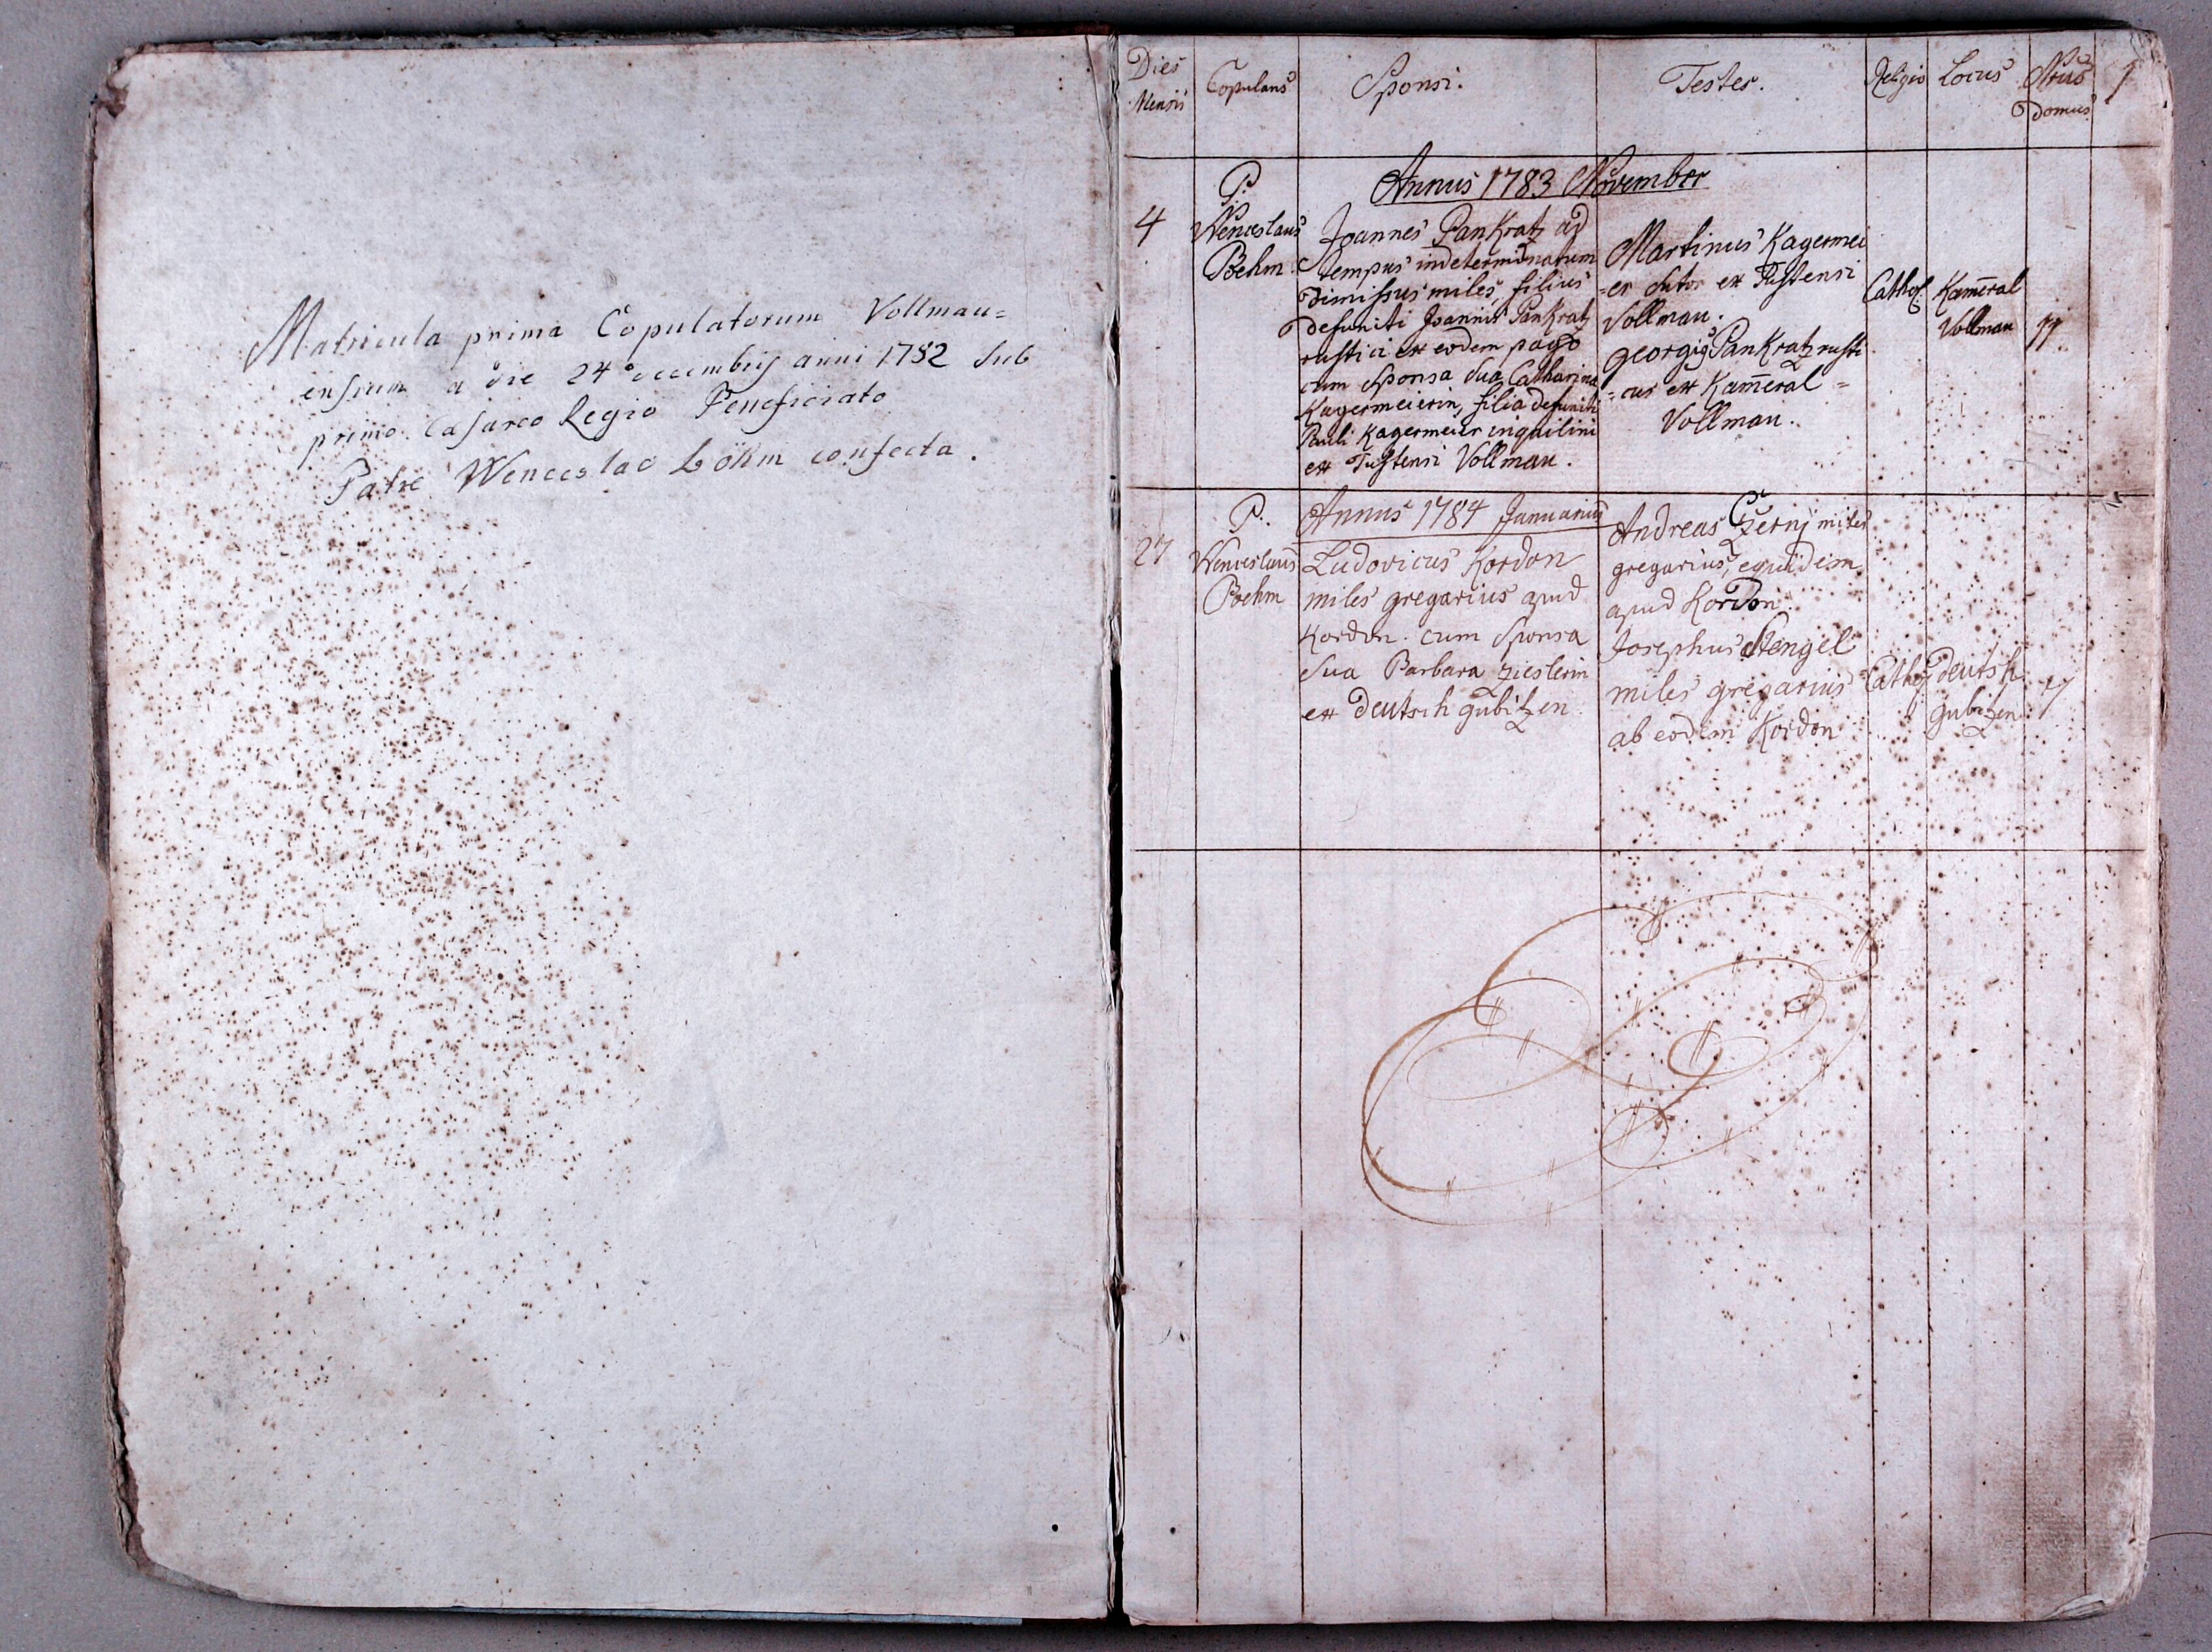 Matricula prima Copulatorum Vollmau=
ensium a die 24 decembris anni 1782 sub
primo Casareo Regio Beneficiato
Patre Wenceslao Böhm confecta.
Dies Mensis
Copulans
Sponsi.
Testes.
Religio
Locus
Nrus Domus
1
Annus 1783 November
4
P.
Wenceslaus
Boehm.
Joannes Pankratz ad
tempus indeterminatum
dimissus miles, filius
defuncti Joannis Pankratz
rustici ex eodem pago
cum Sponsa sua Catharina
Kagermeierin, filia defuncti
Pauli Kagermeier inquilini
ex Tustensi Vollmau.
Martinus Kagermei
=er sutor ex Tustensi
Vollmau.
georgig Pankratz rusti
=cus ex Kam̄eral=
Vollmau.
Cathol.
Kam̄eral
Vollmau
11.
Annus 1784 Januarius
27
P.
Wenceslaus
Boehm
Ludovicus Kordon
miles gregarius apud
Kordon. cum Sponsa
sua Barbara Zieslerin
ex deutsch gubitzen.
Andreas Czernj miles
gregarius, equidem
apud Kordon.
Josephus Stengel
miles gregarius
ab eodem Kordon
Cathol.
deutsch
gubitzen.